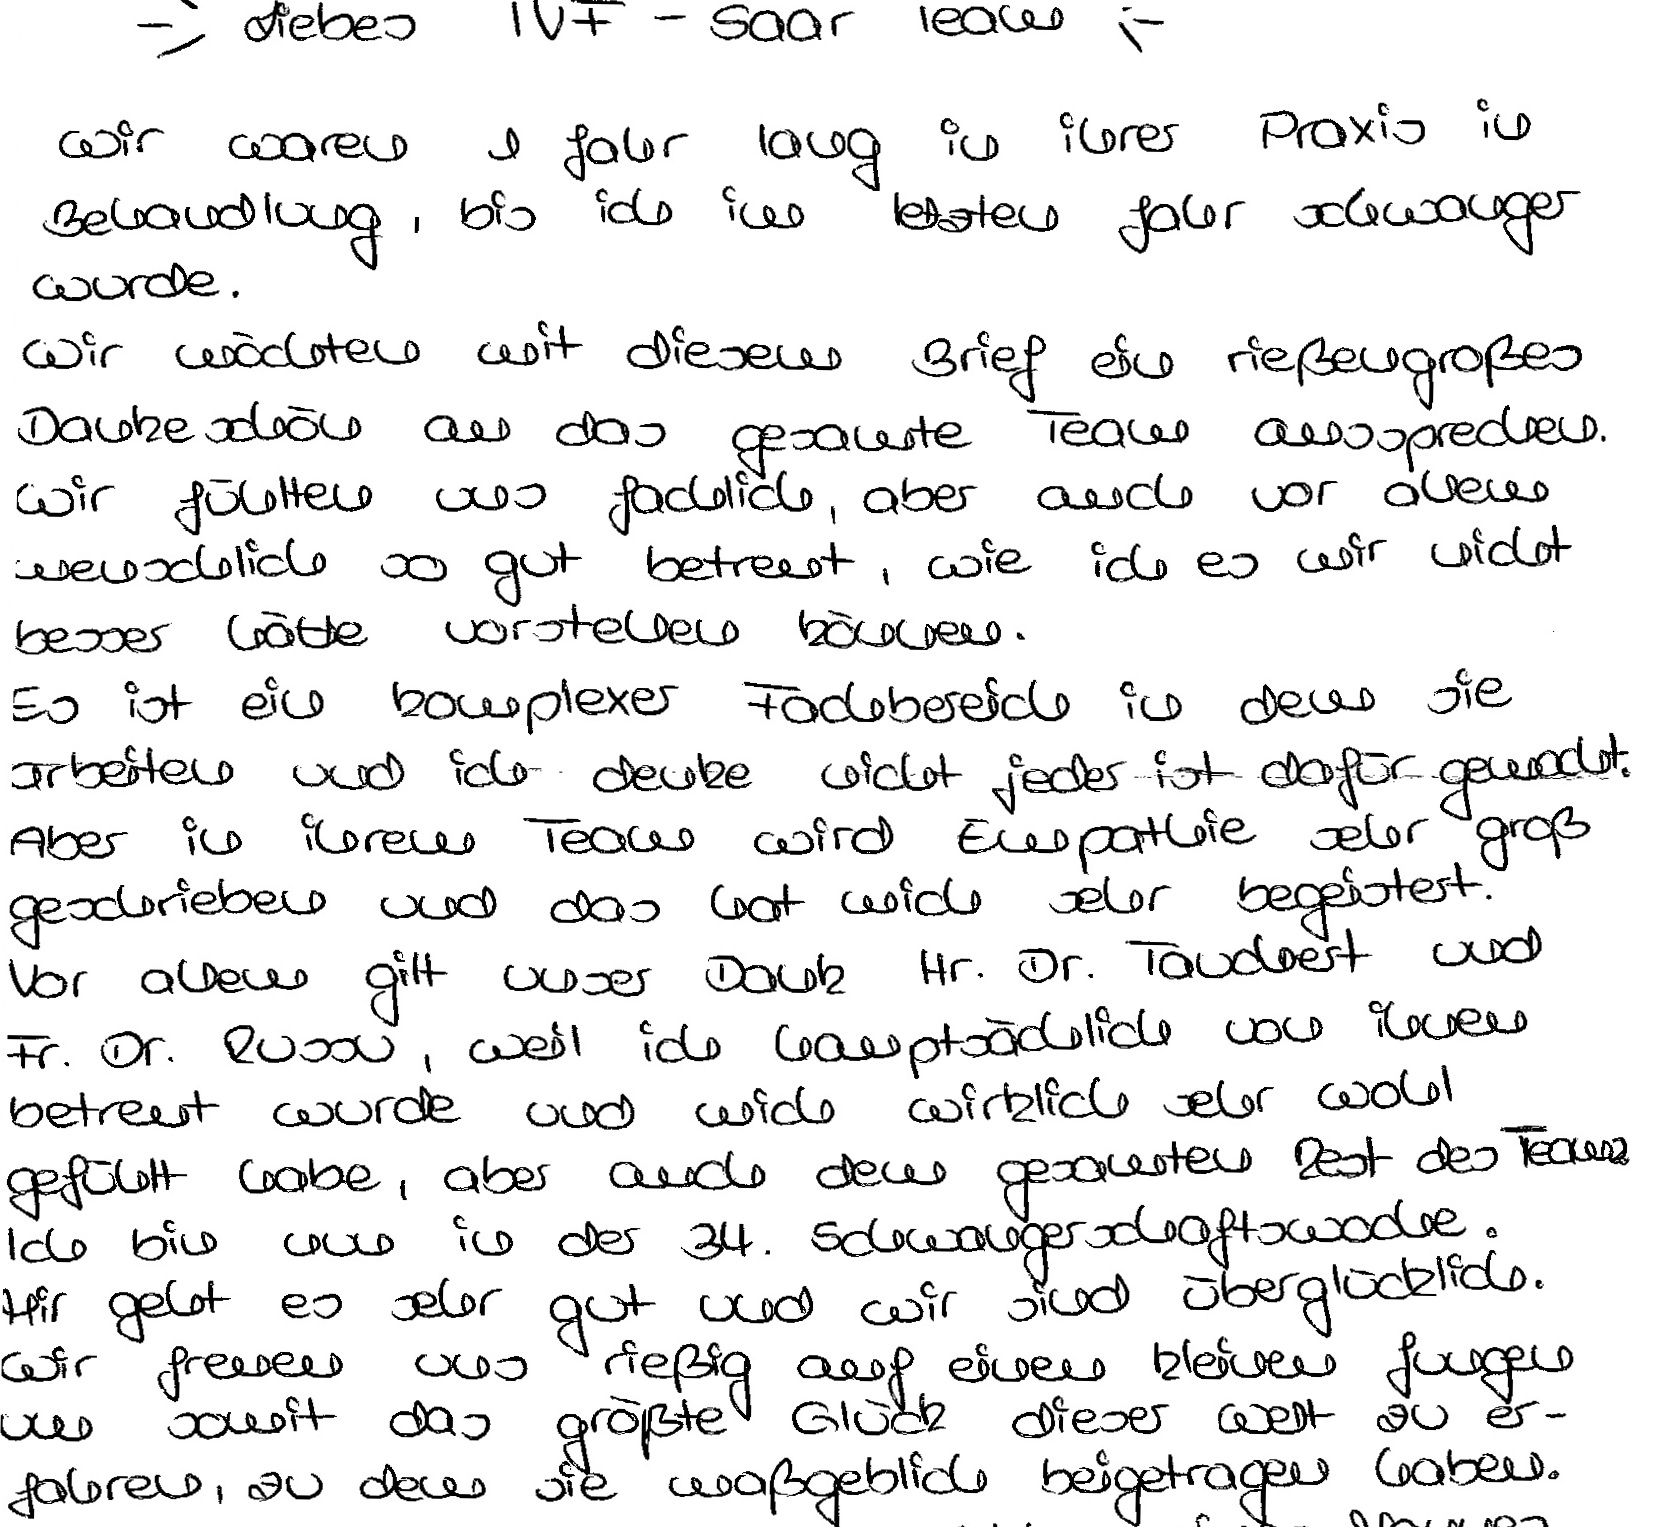 -> Liebes IVF - Saar Team <-
Wir waren 1 Jahr lang in ihrer Praxis in
Behandlung, bis ich im letzten Jahr schwanger
wurde.
Wir möchten mit diesem Brief ein rießengroßes
Dankeschön an das gesamte Team aussprechen.
Wir fühlten uns fachlich, aber auch vor allem
menschlich so gut betreut, wie ich es mir nicht
besser hätte vorstellen können.
Es ist ein komplexer Fachbereich in dem sie
arbeiten und ich denke nicht jeder ist dafür gemacht.
Aber in ihrem Team wird Empathie sehr groß
geschrieben und das hat mich sehr begeistert.
Vor allem gilt unser Dank Hr. Dr. Tandler und
Fr. Dr. Russu, weil ich hauptsächlich von ihnen
betreut wurde und mich wirklich sehr wohl
gefühlt habe, aber auch dem gesamten Rest des Teams
Ich bin nun in der 34. Schwangerschaftswoche.
Mir geht es sehr gut und wir sind überglücklich.
Wir freuen uns rießig auf einen kleinen Jungen
um somit das größte Glück dieser Welt zu er-
fahren, zu dem sie maßgeblich beigetragen haben.